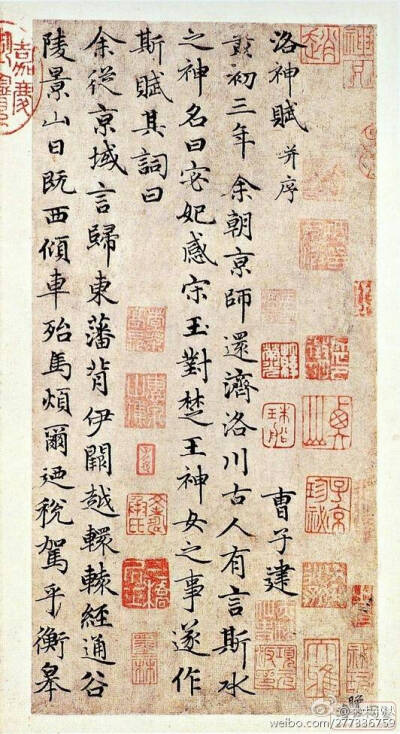 洛神賦 并序
曹子建
黃初三年余朝京師還濟洛川古人有言斯水
之神名曰宓妃感宋玉對楚王神女之事遂作
斯賦其詞曰
余從京域言歸東藩背伊闕越轘轅經通谷
陵景山日既西傾車殆馬煩爾迺稅駕乎衡皋
晚
weibo.com/277836759